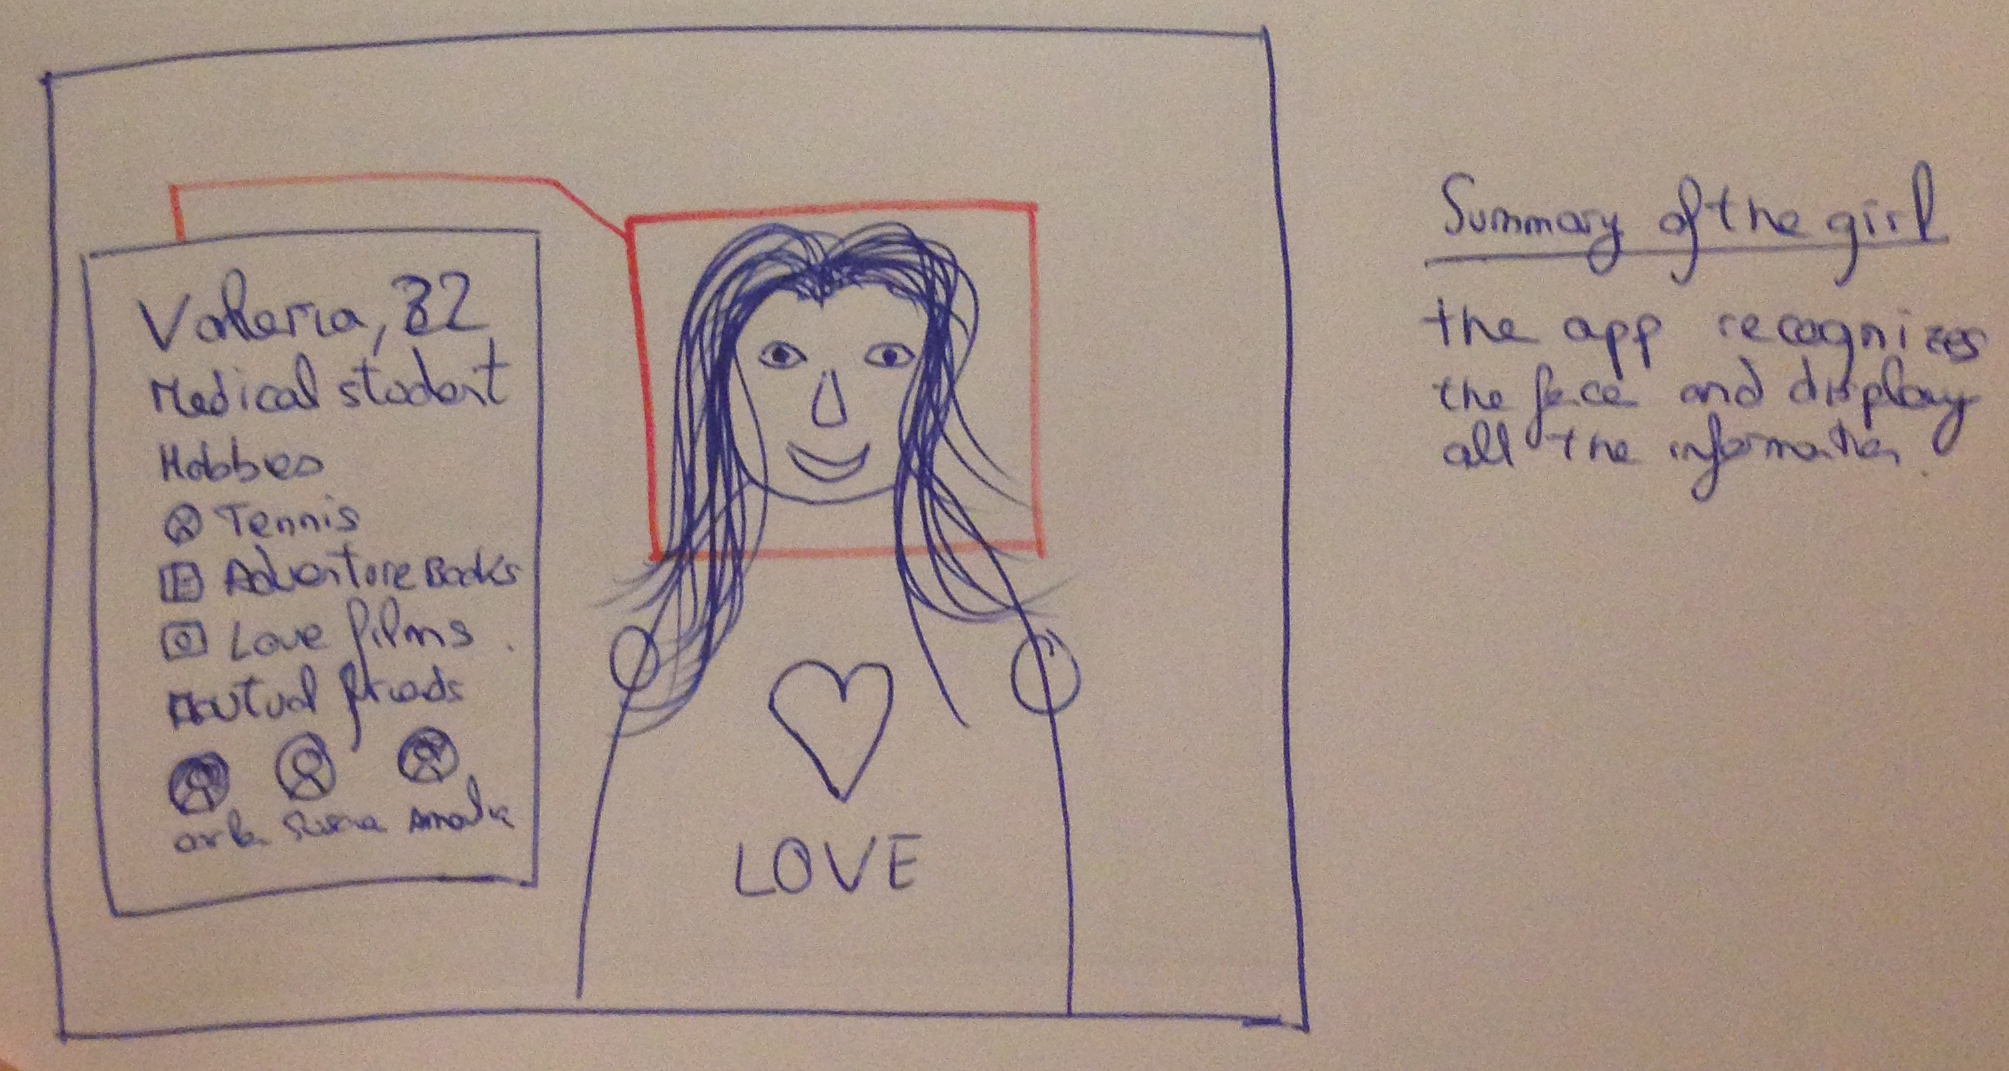 Valeria, 32
Medical student
Hobbies
Tennis
Adventure Books
Love films.
Mutual friends
Amalia
LOVE
Summary of the girl
the app recognizes
the face and display
all the information.